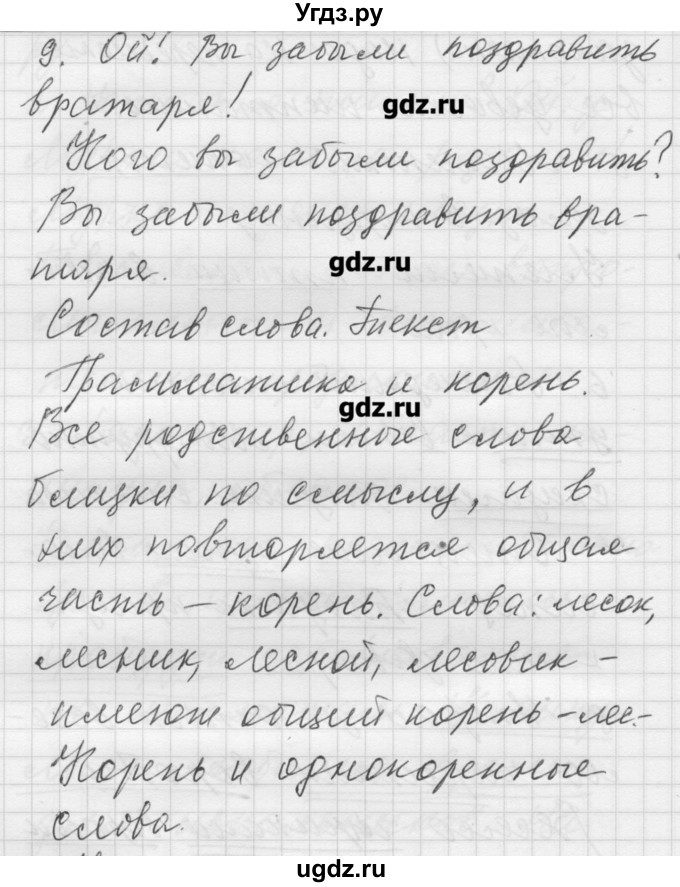 Угдз.ру
9. Ой! Вы забыли поздравить
gdz.ru
вратаря!
Кого вы забыли поздравить?
Вы забыли поздравить вра-
gdz.ru
таря.
Состав слова. Текст
Грамматика и корень.
gdz.ru
Все родственные слова
близки по смыслу, и в
них повторяется общая
часть – корень. Слова: лесок,
лесник, лесной, лесовик –
имеют общий корень –лес-
Корень и однокоренные
слова.
ugdz.ru